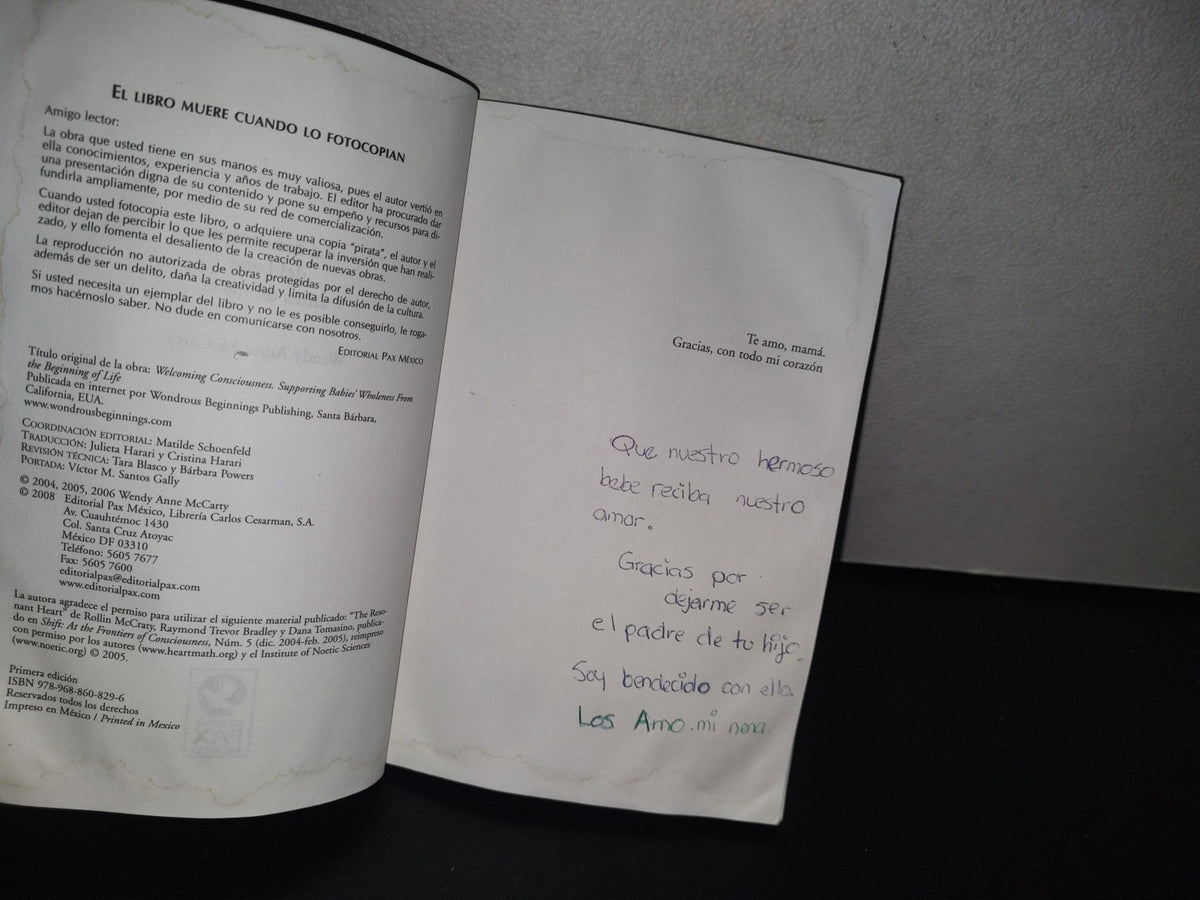 EL LIBRO MUERE CUANDO LO FOTOCOPIAN
Amigo lector:
La obra que usted tiene en sus manos es muy valiosa, pues el autor vertió en
ella conocimientos, experiencia y años de trabajo. El editor ha procurado dar
una presentación digna de su contenido y pone su empeño y recursos para di-
fundirla ampliamente, por medio de su red de comercialización.
Cuando usted fotocopia este libro, o adquiere una copia "pirata", el autor y el
editor dejan de percibir lo que les permite recuperar la inversión que han reali-
zado, y ello fomenta el desaliento de la creación de nuevas obras.
La reproducción no autorizada de obras protegidas por el derecho de autor,
además de ser un delito, daña la creatividad y limita la difusión de la cultura.
Si usted necesita un ejemplar del libro y no le es posible conseguirlo, le roga-
mos hacérnoslo saber. No dude en comunicarse con nosotros.
EDITORIAL PAX MÉXICO
Título original de la obra: Welcoming Consciousness. Supporting Babies' Wholeness From
the Beginning of Life
Publicada en internet por Wondrous Beginnings Publishing, Santa Bárbara,
California, EUA.
www.wondrousbeginnings.com
COORDINACIÓN EDITORIAL: Matilde Schoenfeld
TRADUCCIÓN: Julieta Harari y Cristina Harari
REVISIÓN TÉCNICA: Tara Blasco y Bárbara Powers
PORTADA: Víctor M. Santos Gally
© 2004, 2005, 2006 Wendy Anne McCarty
© 2008 Editorial Pax México, Librería Carlos Cesarman, S.A.
Av. Cuauhtémoc 1430
Col. Santa Cruz Atoyac
México DF 03310
Teléfono: 5605 7677
Fax: 5605 7600
editorialpax@editorialpax.com
www.editorialpax.com
La autora agradece el permiso para utilizar el siguiente material publicado: "The Reso-
nant Heart" de Rollin McCraty, Raymond Trevor Bradley y Dana Tomasino, publica-
do en Shift: At the Frontiers of Consciousness, Núm. 5 (dic. 2004-feb. 2005), reimpreso
con permiso por los autores (www.heartmath.org) y el Institute of Noetic Sciences
(www.noetic.org) © 2005.
Primera edición
ISBN 978-968-860-829-6
Reservados todos los derechos
Impreso en México / Printed in Mexico
Te amo, mamá.
Gracias, con todo mi corazón
Que nuestro hermoso
bebe reciba nuestro
amor.
Gracias por
dejarme ser
el padre de tu hijo.
Soy bendecido con ella
Los Amo. mi nena.